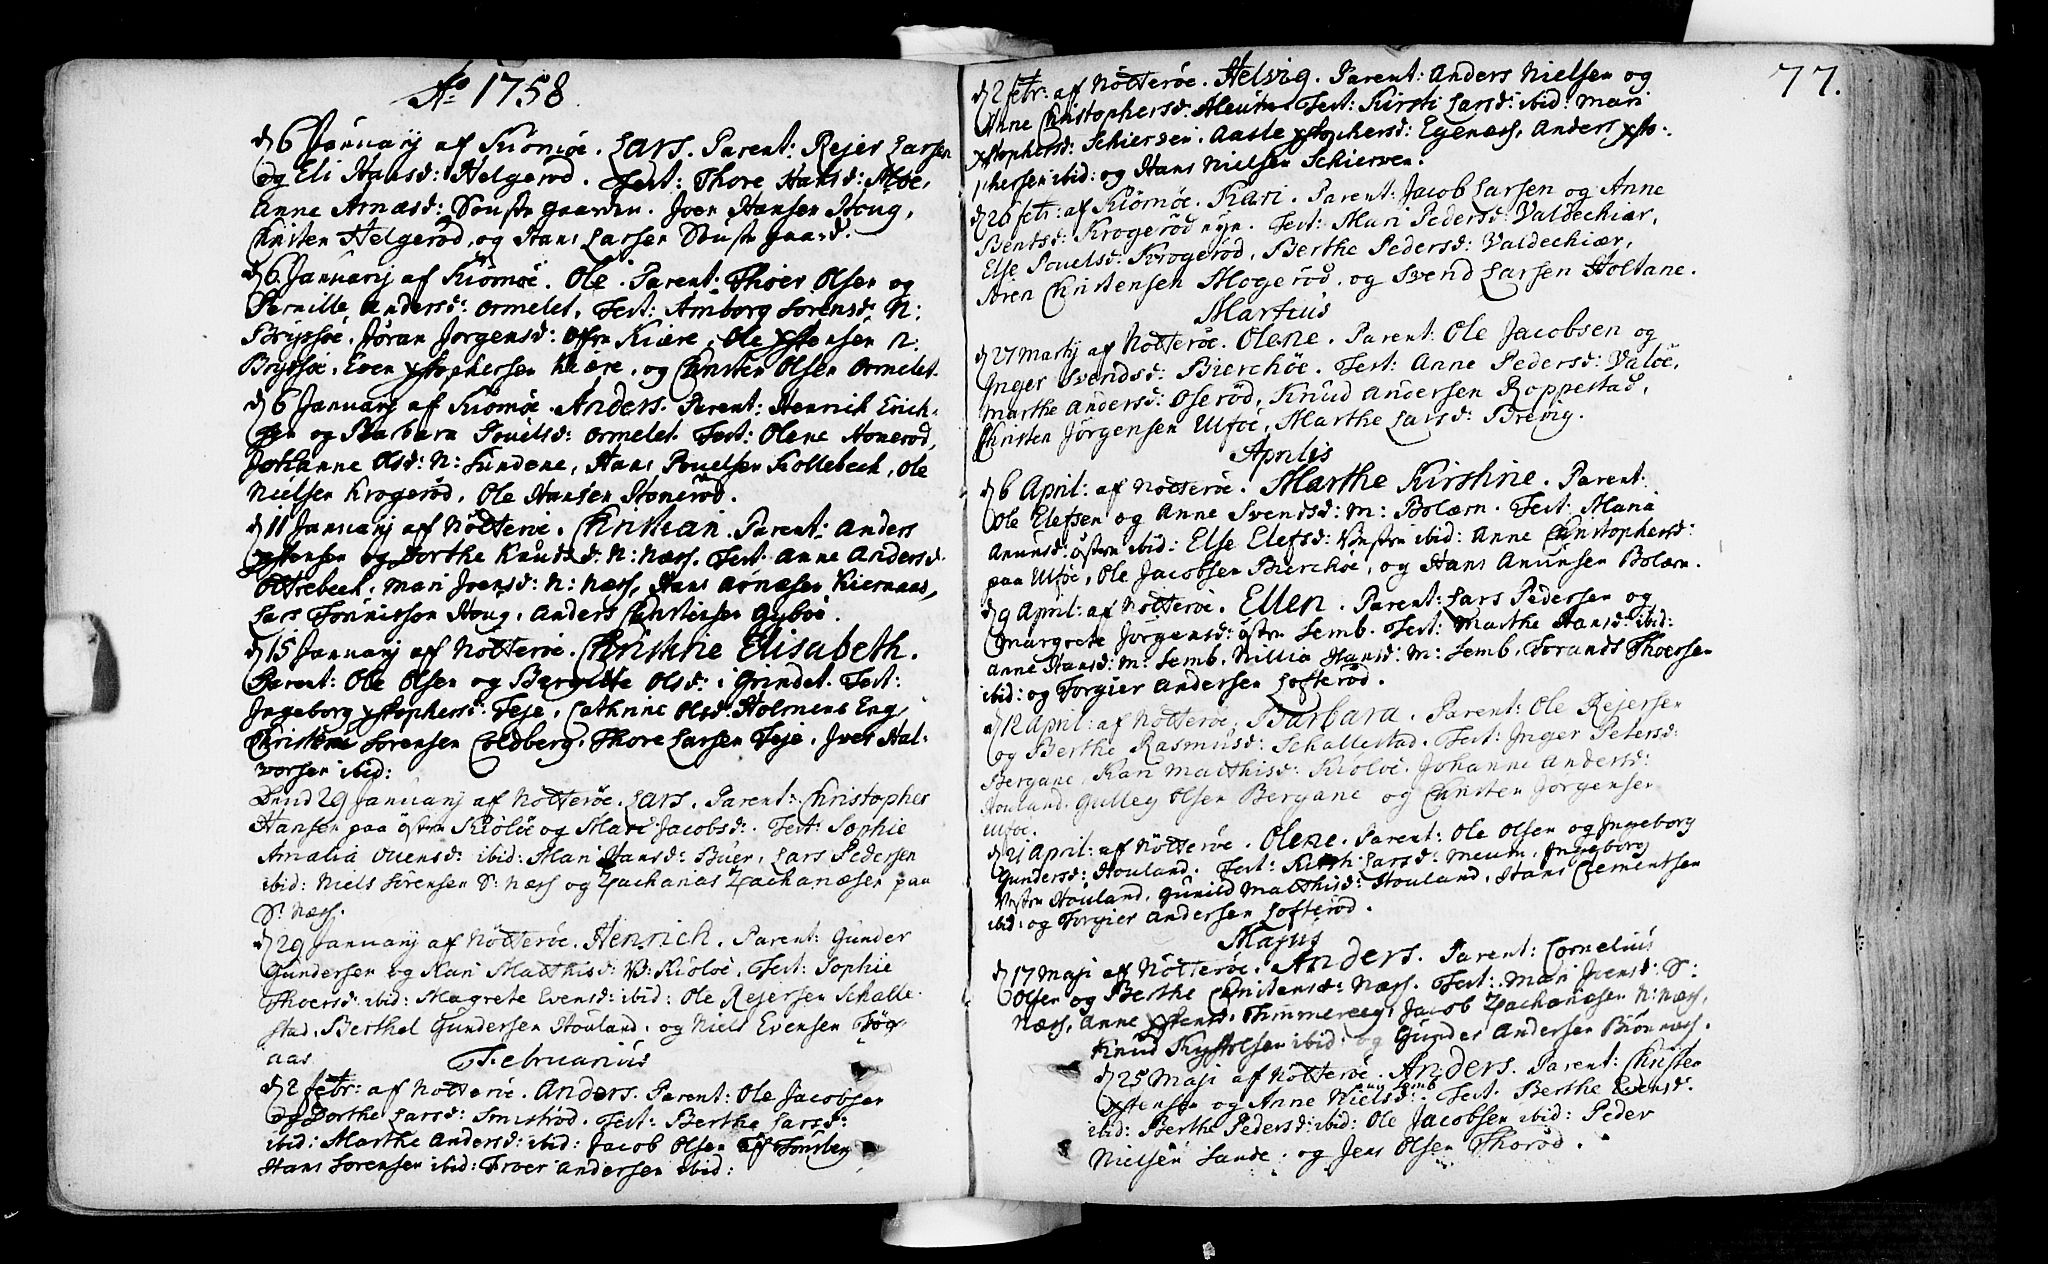 Ao 1758
d 6 Januarij af Kiömöe. Lars. Parent: Rejer Larsen
og Eli Hansd: Helgerød. Test: Thore Hansd: Moe,
Anne Arnæsd: Søustr gaarden. Joen Hansen Houg,
Christen Helgerød, og Hans Larsen Søustr gaard.
d 6. Januarij af Kiömöe. Ole. Parent: Thoer Olsen og
Pernille Andersd: Ormelet. Test: Amborg Sørensd: N:
Bryssöe. Jøran Jørgensd: Kiære, Ole Xstensen N.
Bryssöe, Even Xstophersen Kiære, og Christen Olsen Ormelet.
d 6 Januarij af Kiömöe. Anders. Parent: Henrich Erich-
sen og Barbara Povelsd: Ormelet. Test: Olene Honerød,
Johanne Olsd: N: Sundene, Hans Povelsen Kollebech, Ole
Nielsen Krogerød, Ole Hansen Honerød.
d 11 Januarij af Nötteröe. Christian. Parent: Anders
Xstensen og Dorthe Knudsd: N: Næss. Test: Anne Andersd:
Ottrebech, Mari Joensd: N: Næss, Hans Arnæsen Kiernaas,
Lars Tønnisson Houg, Anders Christensen Gyböe.
d 15 Januarij af Nötteröe. Christine Elisabeth.
Parent: Ole Olsen og Bergitte Olsd: i Grindet. Test:
Ingeborg Xstophersd: Teje, Cathrine Olsd: Holmens Eng,
Christen Sørensen Coldberg, Thore Larsen Teje, Iver Hal-
vorsen ibid:
Dend 29 Januarij af Nötteröe. Lars. Parent: Christopher
Hansen paa östre Kiölöe og Mari Jacobsd: Test: Sophie
Amalia Ovensd: ibid: Mari Hansd: Buer, Lars Pedersen
ibid: Niels Sörensen S: Næss og Zacharias Zachariæsen paa
S: Næss.
d 29 Januarij af Nötteröe. Henrich. Parent: Gunder
Gundersen og Kari Matthisd: V: Kiölöe. Test: Sophie
Thoersd: ibid: Magrete Evensd: ibid: Ole Rejersen Schalle-
stad, Berthel Gundersen Houland, og Niels Evensen
aas.
Februarius
d 2 febr: af Nötteröe. Anders. Parent: Ole Jacobsen
og Dorthe Larsd: Smidsrød. Test: Berthe Larsd:
ibid: Marthe Andersd: ibid: Jacob Olsen af Tönsberg
Hans Sørensen ibid: Troer Andersen ibid:
77.
d 2 febr: af Nötteröe. Helvig. Parent: Anders Nielsen og
Anne Christophersd: Meum. Test: Kirsti Larsd: ibid: Mari
Xstophersd: Schierven, Aasle Xstophersd: Egenæss, Anders Xsto-
phersen ibid: og Hans Nielsen Schierven.
d 26 febr: af Kiömöe. Kari. Parent: Jacob Larsen og Anne
Bentsd: Krogerød nyn. Test: Mari Pedersd: Valdechiær,
Else Povelsd: Krogerød, Berthe Pedersd: Valdechiær,
Sören Christensen Hogerød, og Svend Larsen Holtane.
Martius
d 27 Martij af Nötteröe. Olene. Parent: Ole Jacobsen og
Inger Svendsd: Bierchöe. Test: Anne Pedersd: Valöe,
Marthe Andersd: Oserød, Knud Andersen Roppestad,
Christen Jörgensen Ulföe, Marthe Larsd: Brevig.
Aprilis
d 6 April: af Nötteröe. Marthe Kirstine. Parent:
Ole Elefsen og Anne Svendsd: M: Bolærn. Test: Maria
Anunsd: östre ibid: Else Elefsd: Vestre ibid: Anne Christophersd:
paa Ulföe, Ole Jacobsen Bierchöe, og Hans Anunsen Bolærn.
d 9 April: af Nötteröe. Ellen. Parent: Lars Pedersen og
Margrete Jörgensd: östre Semb. Test: Marthe Hansd: ibid:
Anne Hansd: M: Semb, Nillia Hansd: M: Semb, Torands Thoersen
ibid: og Torgier Andersen Lofterød.
d 12 April: af Nötteröe. Barbara. Parent: Ole Rejersen
og Berthe Rasmusd: Schallestad. Test: Inger Petersd:
Bergane, Kari Matthisd: Kiölöe, Johanne Andersd:
Houland, Gulleg Olsen Bergane og Christen Jørgensen
Ulföe.
d 21 April: af Nötteröe. Olene. Parent: Ole Olsen og Ingeborg
Gundersd: Houland. Test: Kirsti Larsd: Meum, Ingeborg
Vestre Houland, Gunild Matthisd: Houland, Hans Clementsen
ibid: og Torgier Andersen Lofterød.
Majus
d 17 Maji af Nötteröe. Anders. Parent: Cornelius
Olsen og Berthe Christansd: Næss. Test: Mari Joensd: S:
Næss, Anne Xstensd: Timmereeg, Jacob Zachariæsen N: Næss,
Knud ibid: og Gunder Andersen Biönnæss.
d 25 Maji af Nötteröe. Anders. Parent: Christen
Xstensen og Anne Nielsd: ung Semb. Test: Berthe Evensd:
ibid: Berthe Pedersd: ibid: Ole Jacobsen ibid: Peder
Nielsen Sande, og Jens Olsen Thorød.